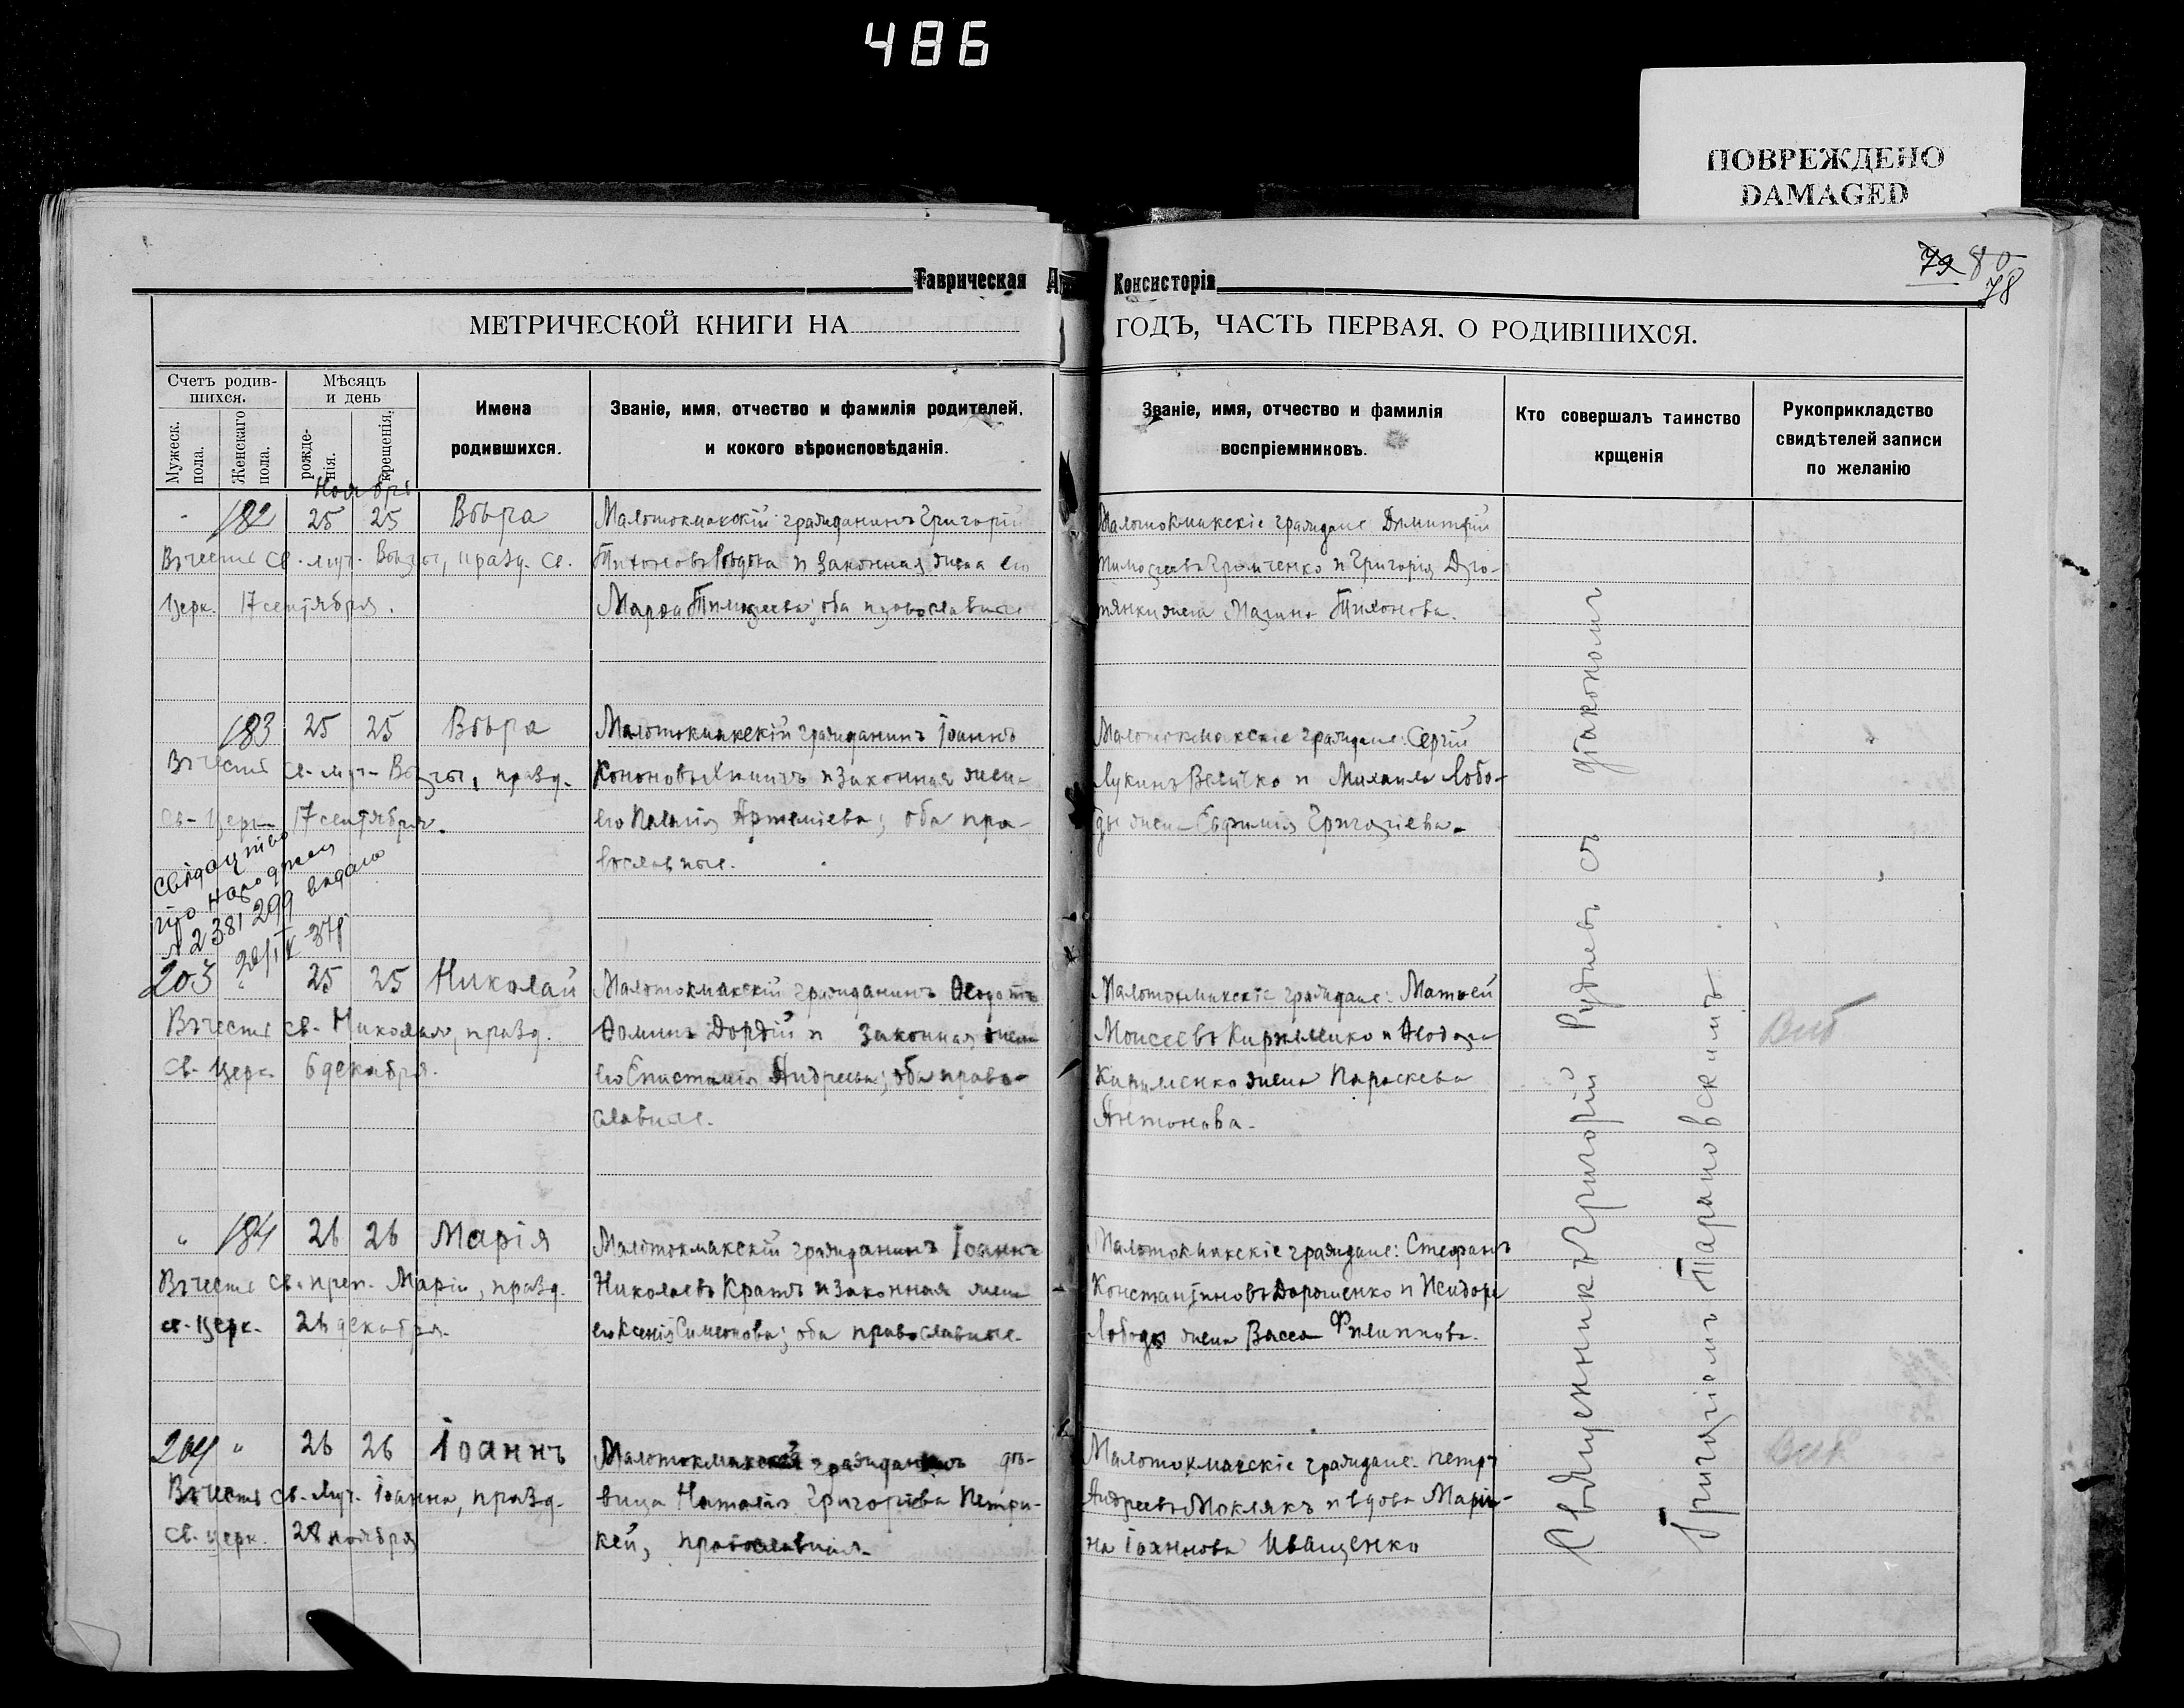 486
ПОВРЕЖДЕНО
DAMAGED
79 80
78
Таврическая Консисторія
МЕТРИЧЕСКОЙ КНИГИ НА ГОДЪ, ЧАСТЬ ПЕРВАЯ. О РОДИВШИХСЯ.
Счетъ родив-
шихся.
Мужеск.
пола.
Женскаго
пола.
Мѣсяцъ
и день
рожде-
нія.
крещенія.
Имена
родившихся.
Званіе, имя, отчество и фамилія родителей,
и кокого вѣроисповѣданія.
Званіе, имя, отчество и фамилія
воспріемниковъ.
Кто совершалъ таинство
крщенія
Рукоприкладство
свидѣтелей записи
по желанію
Ноября
182 25 25 Вѣра
Въ честь св. муч. Вѣры, празд. св.
Церк. 17 сентября.
Малотокмакскій гражданинъ Григорій
Тихоновъ и законная жена его
Марѳа Тимоѳеева; оба православные
Малотокмакскіе граждане Димитрій
Тимоѳеевъ и Григорія Дро-
жена Тихонова.
183 25 25 Вѣра
Въ честь св. муч. Вѣры, празд.
св. Церк. 17 сентября.
Малотокмакскій гражданинъ Іоаннъ
Кононовъ и законная жена
его Пелагія Артеміева; оба пра-
вославные.
Малотокмакскіе граждане: Сергій
Лукинъ Величко и Михаила Лобо-
ды жена Евфимія Григоріева.
Свідоцтво
про народжен
№ 2381299 видано
203 " 25 25 Николай
Въ честь св. Николая, празд.
св. Церк. 6 декабря.
Малотокмакскій гражданинъ Ѳеодотъ
Ѳоминъ и законная жена
его Андреева; оба право-
славные.
Малотокмакскіе граждане: Матѳей
Моисеевъ Кириленко и Ѳеодора
Кириленко жена Параскева
Антонова.
Вид
" 184 26 26 Марія
Въ честь св. преп. Маріи, празд.
св. Церк. 26 декабря.
Малотокмакскій гражданинъ Іоаннъ
Николаевъ Кратъ и законная жена
его Ксенія Симеонова; оба православные.
Малотокмакскіе граждане: Стефанъ
Константиновъ Дорошенко и Исидора
Лободы жена Васса Филиппова.
204 " 26 26 Іоаннъ
Въ честь св. муч. Іоанна, празд.
св. церк. 28 ноября
Малотокмакская гражданка дѣ-
вица Наталія Григорьева Петри-
кей, православная.
Малотокмакскіе граждане: Петръ
Андреевъ Моклякъ и вдова Мари-
на Іоаннова Иващенко
Священникъ Григорій Рудневъ съ діакономъ
Григоріемъ Тарановскимъ